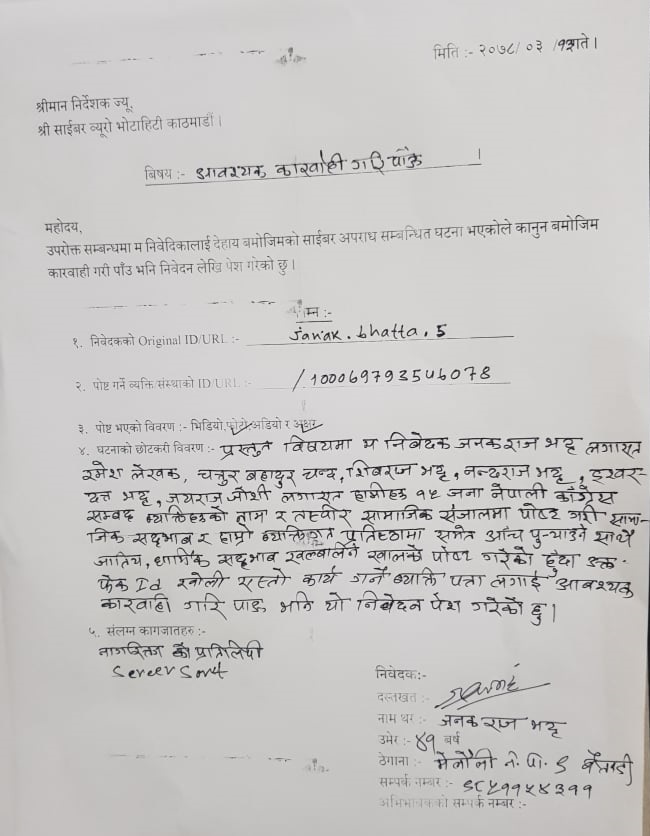 मिति :- २०७८/०३/ गते ।
श्रीमान निर्देशक ज्यू,
श्री साईबर व्यूरो भोटाहिटी काठमाडौं ।
बिषय :- आवश्यक कारवाही गरि पाँऊ ।
महोदय,
उपरोक्त सम्बन्धमा म निवेदिकालाई देहाय बमोजिमको साईबर अपराध सम्बन्धित घटना भएकोले कानुन बमोजिम
कारवाही गरी पाँउ भनि निवेदन लेखि पेश गरेको छु ।
१. निवेदकको Original ID/URL :- janak.bhatta.5
२. पोष्ट गर्ने व्यक्ति/संस्थाको ID/URL :- /100069793546078
३. पोष्ट भएको विवरण :- भिडियो,फोटो,अडियो र अक्षर
४. घटनाको छोटकरी विवरण :- प्रस्तुत विषयमा म निवेदक जनकराज भट्ट लगायत
रमेश लेखक, चतुर बहादुर चन्द, शिवराज भट्ट, नन्दराज भट्ट, ईश्वर-
दत्त भट्ट, जयराज जोशी लगायत हामीहरु १५ जना नेपाली काँग्रेस
सम्वद्ध व्यक्तिहरुको नाम र तस्वीर सामाजिक संजालमा पोष्ट गरी सामा-
जिक सद्भाव र हाम्रो व्यक्तिगत प्रतिष्ठामा समेत आँच पुर्‍याउने साथै
जातिय, धार्मिक सद्भाव खल्बलिने खालको पोष्ट गरेको हुँदा उक्त
फेक Id खोली यस्तो कार्य गर्ने व्यक्ति पत्ता लगाई आवश्यक
कारवाही गरि पाऊ भनि यो निवेदन पेश गरेको छु ।
५. संलग्न कागजातहरु :-
नागरिकता को प्रतिलिपी
निवेदक:-
दस्तखत :-
नाम थर :- जनक राज भट्ट
उमेर :- ४१ बर्ष
ठेगाना :- मेलौली न. पा. ९ बैतडी
सम्पर्क नम्बर :- ९८५११५४३११
अभिभाबकको सम्पर्क नम्बर :-